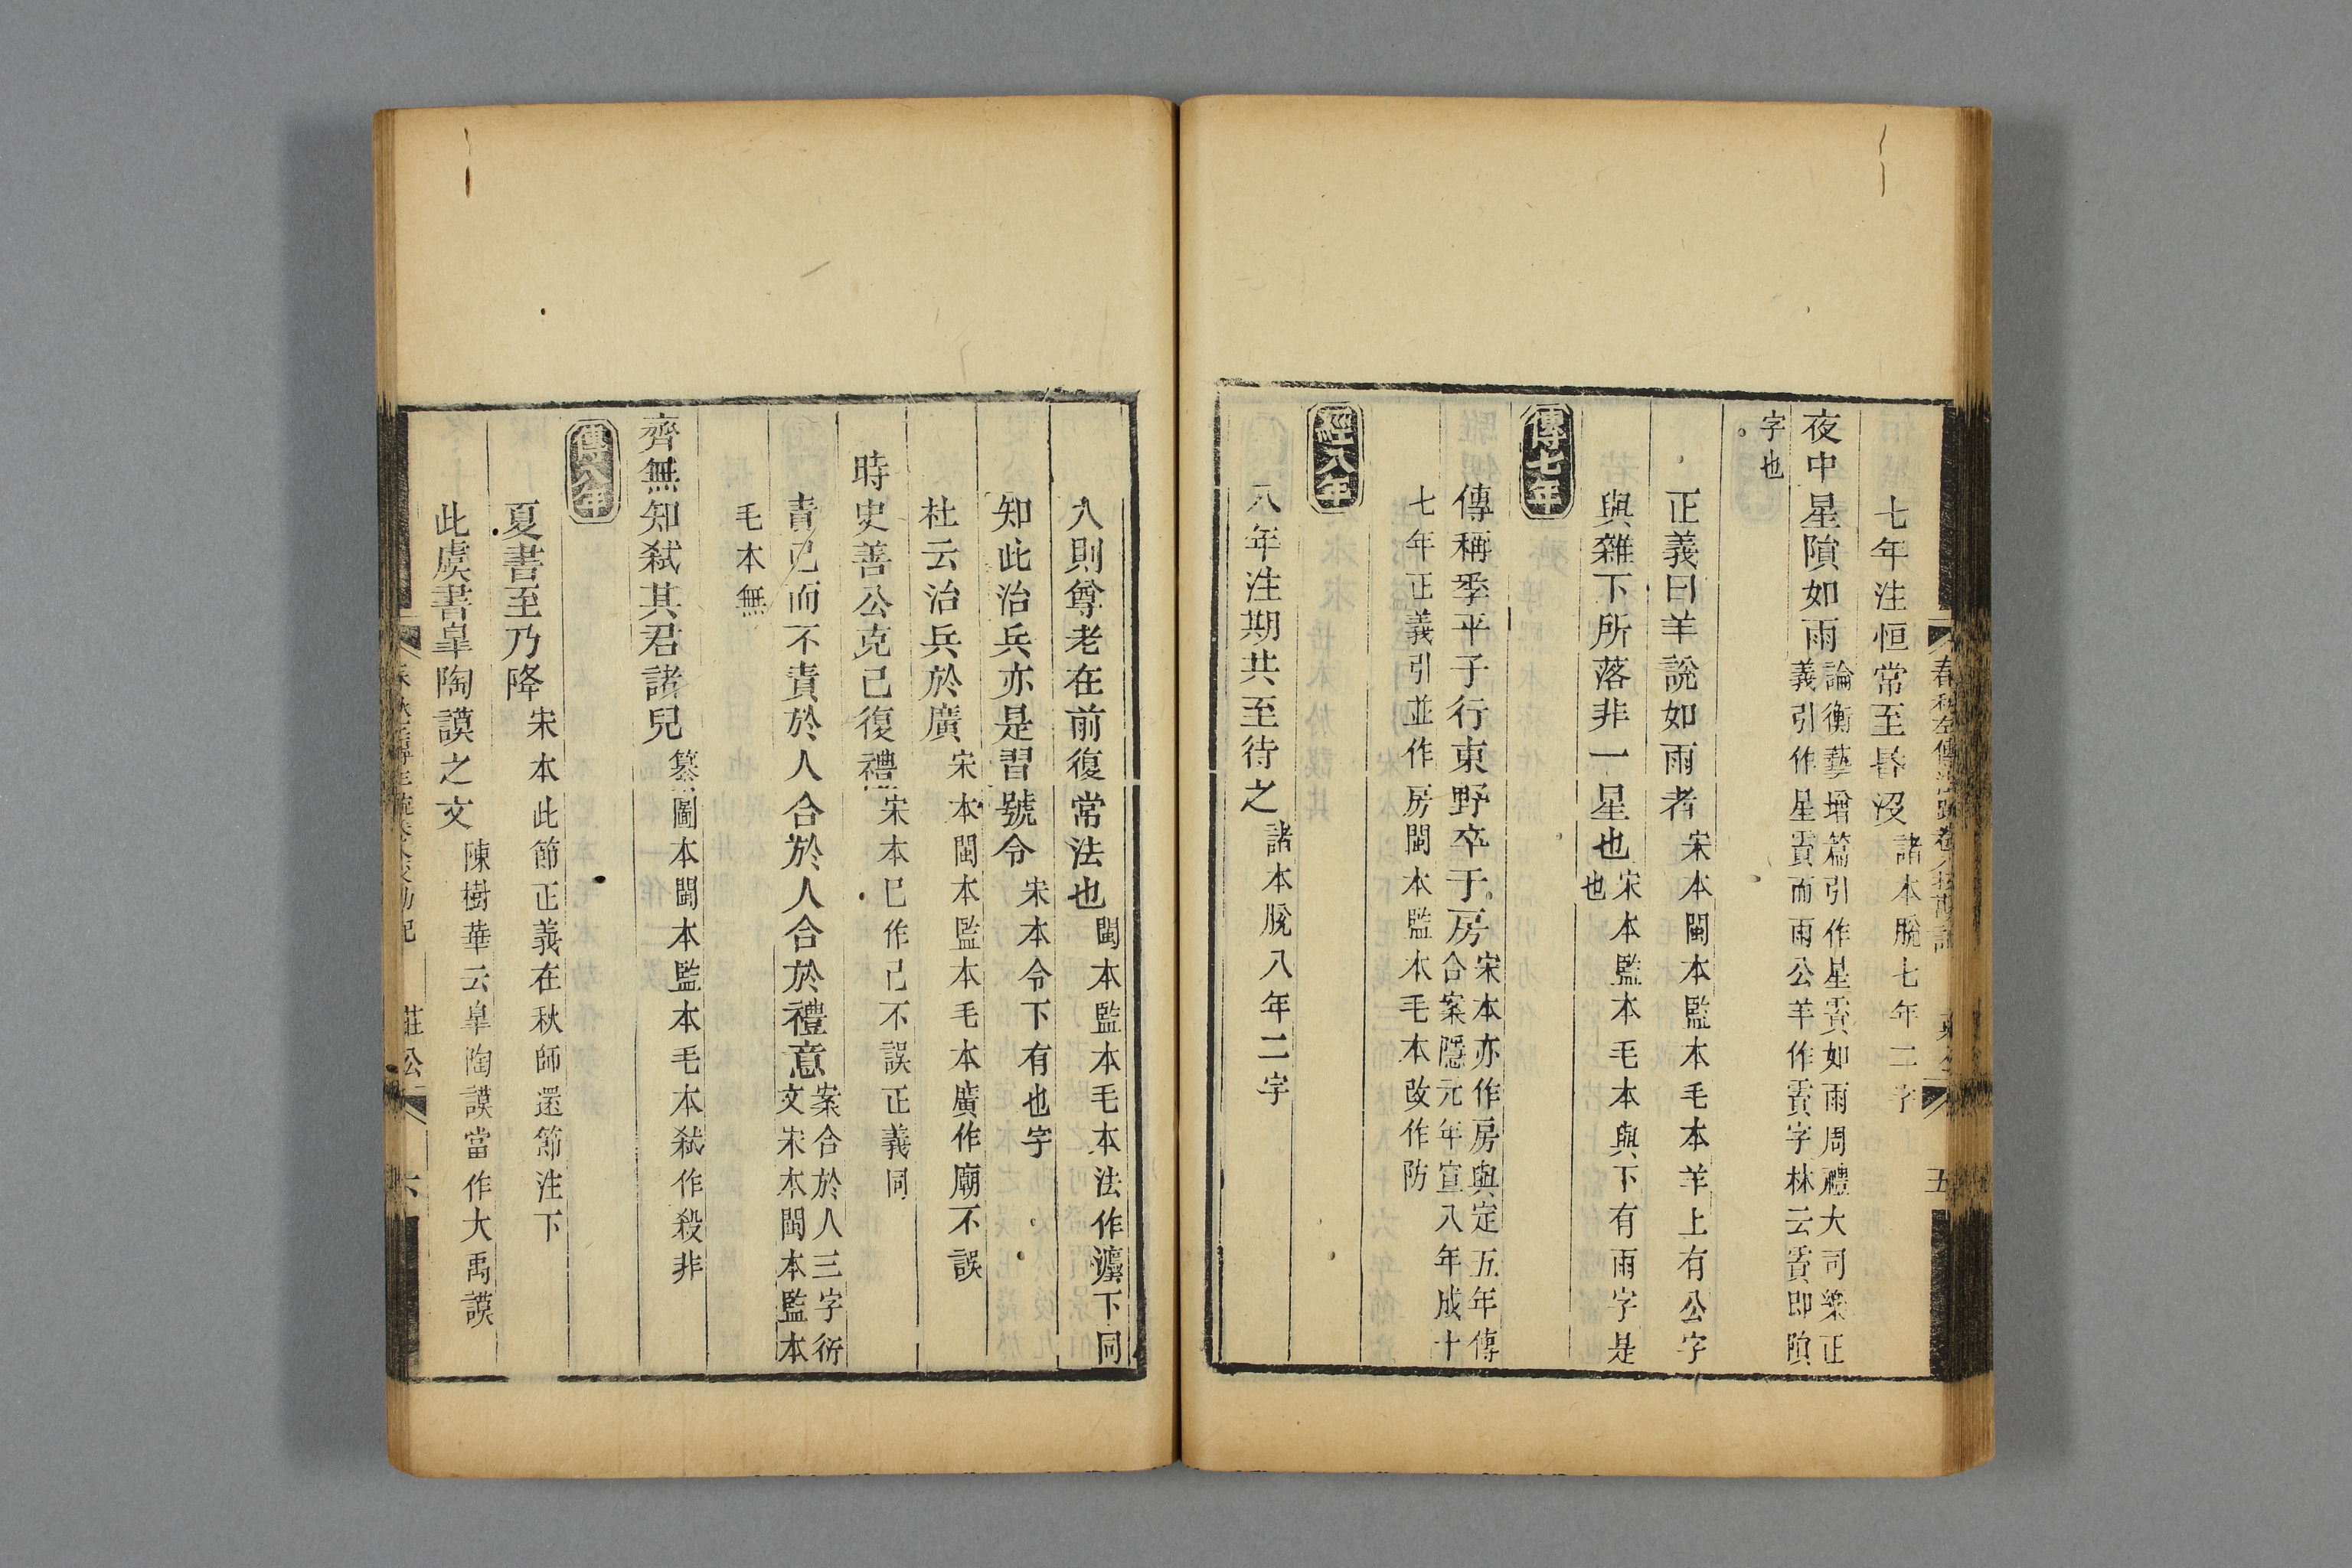 七年注恒常至昏沒諸本脫七年二字
夜中星隕如雨論衡藝增篇引作星霣如雨周禮大司樂正
義引作星霣而雨公羊作霣字林云霣即隕
字也
正義曰羊說如雨者宋本閩本監本毛本羊上有公字
與雜下所落非一星也宋本監本毛本與下有雨字是
也
傳七年
傳稱季平子行東野卒于房宋本亦作房與定五年傳
合案隱元年宣八年成十
七年正義引並作房閩本監本毛本改作防
經八年
八年注期共至待之諸本脫八年二字
五
入則尊老在前復常法也閩本監本毛本法作灋下同
知此治兵亦是習號令宋本令下有也字
杜云治兵於廣宋本閩本監本毛本廣作廟不誤
時史善公克己復禮宋本已作己不誤正義同
責己而不責於人合於人合於禮意案合於人三字衍
文宋本閩本監本
毛本無
齊無知弒其君諸兒纂圖本閩本監本毛本弒作殺非
傳八年
夏書至乃降宋本此節正義在秋師還節注下
此虞書皐陶謨之文陳樹華云皐陶謨當作大禹謨
莊公
六